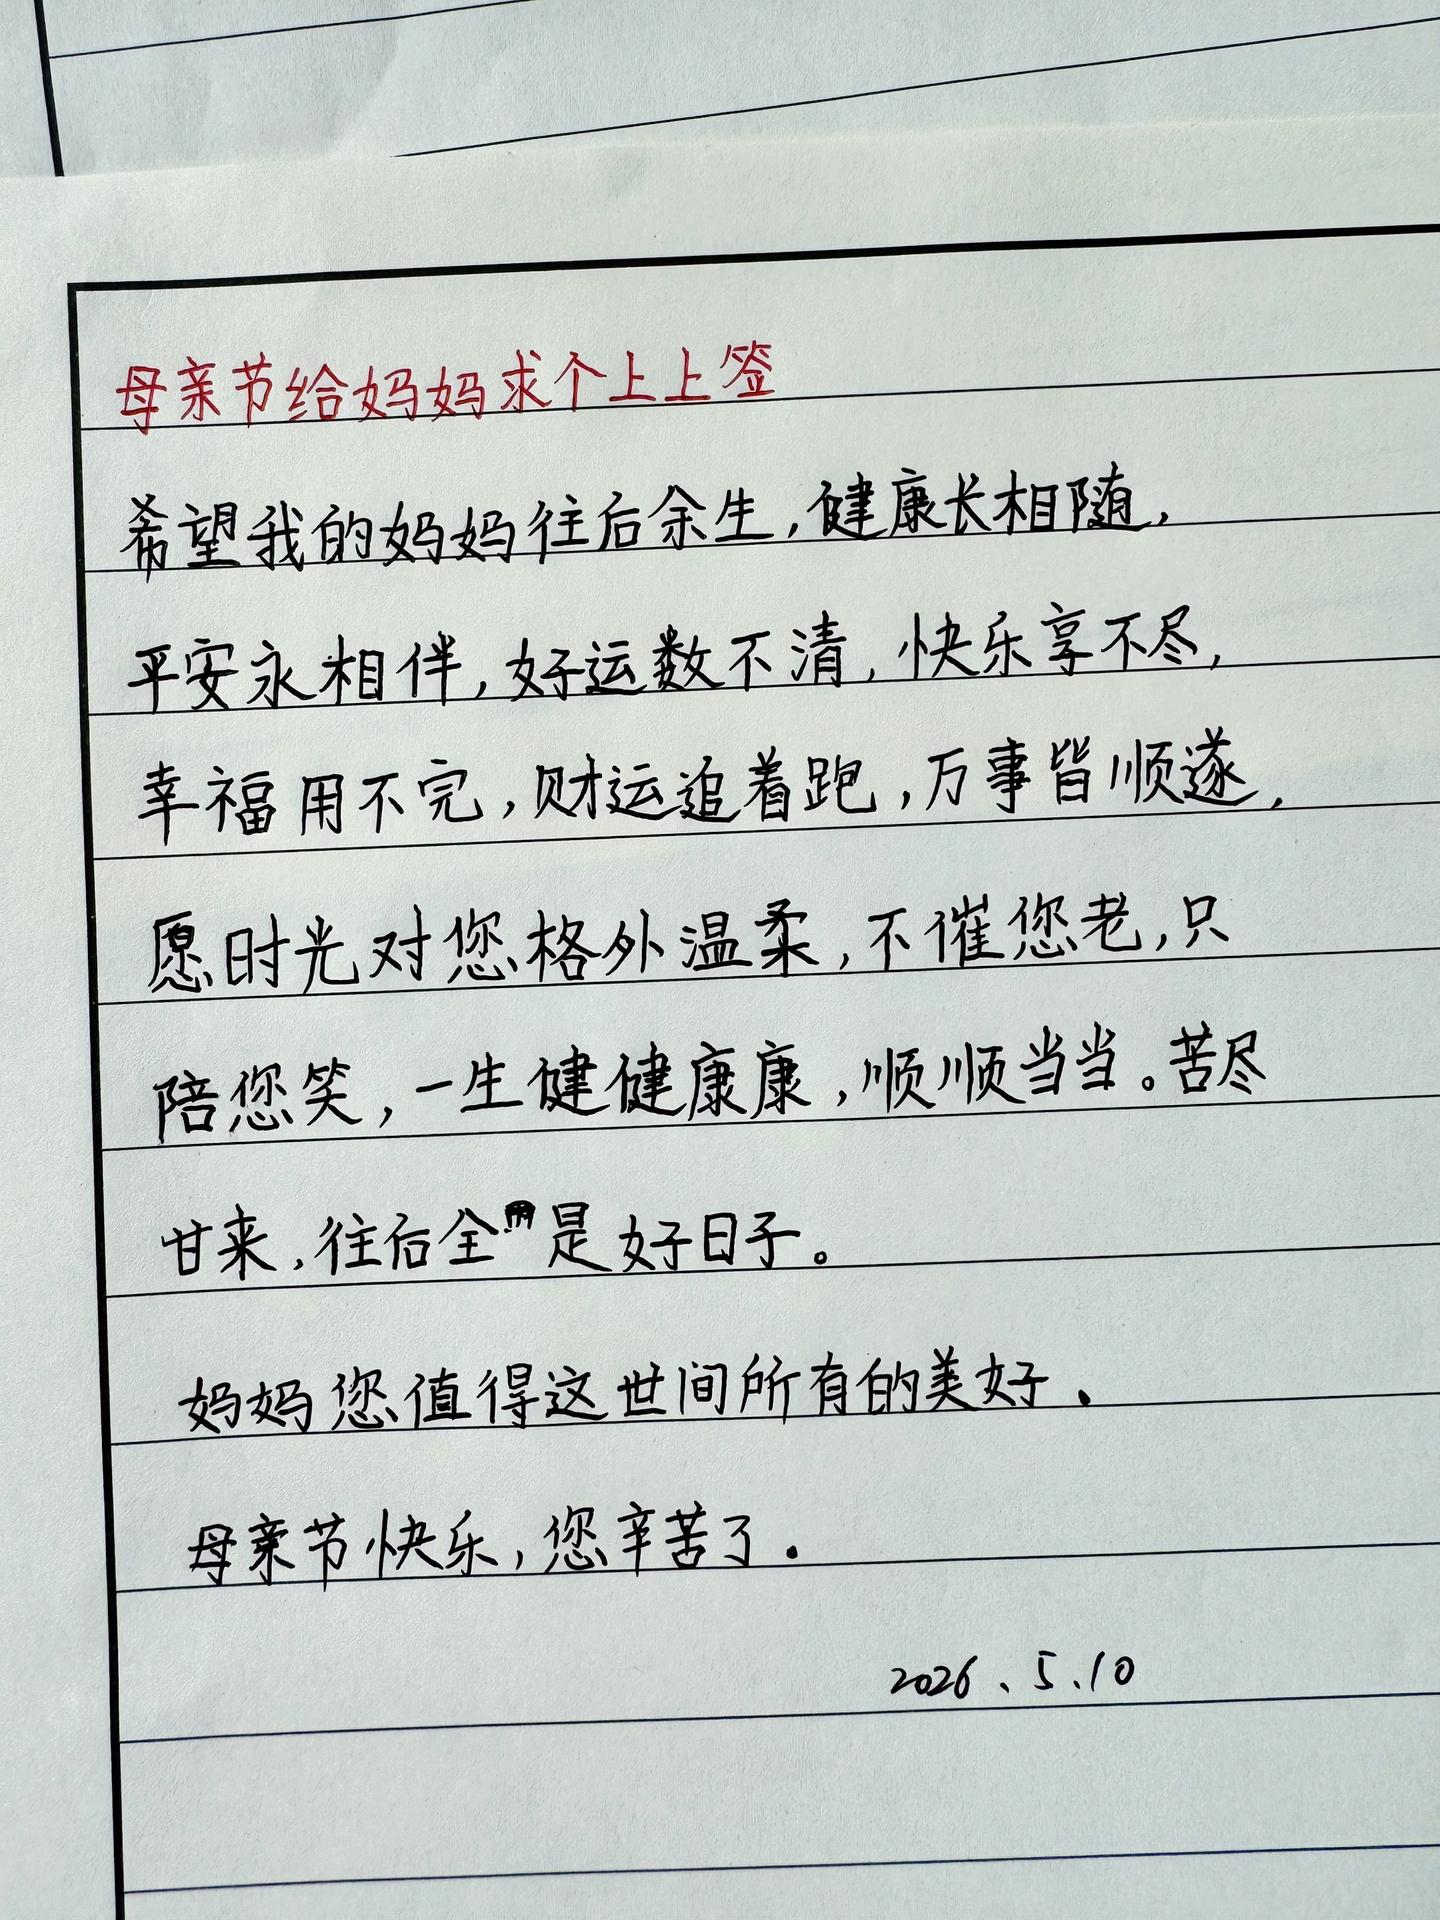 母亲节给妈妈求个上上签
希望我的妈妈往后余生,健康长相随,
平安永相伴,好运数不清,快乐享不尽,
幸福用不完,财运追着跑,万事皆顺遂,
愿时光对您格外温柔,不催您老,只
陪您笑,一生健健康康,顺顺当当。苦尽
甘来,往后全是好日子。
妈妈您值得这世间所有的美好.
母亲节快乐,您辛苦了.
2026.5.10